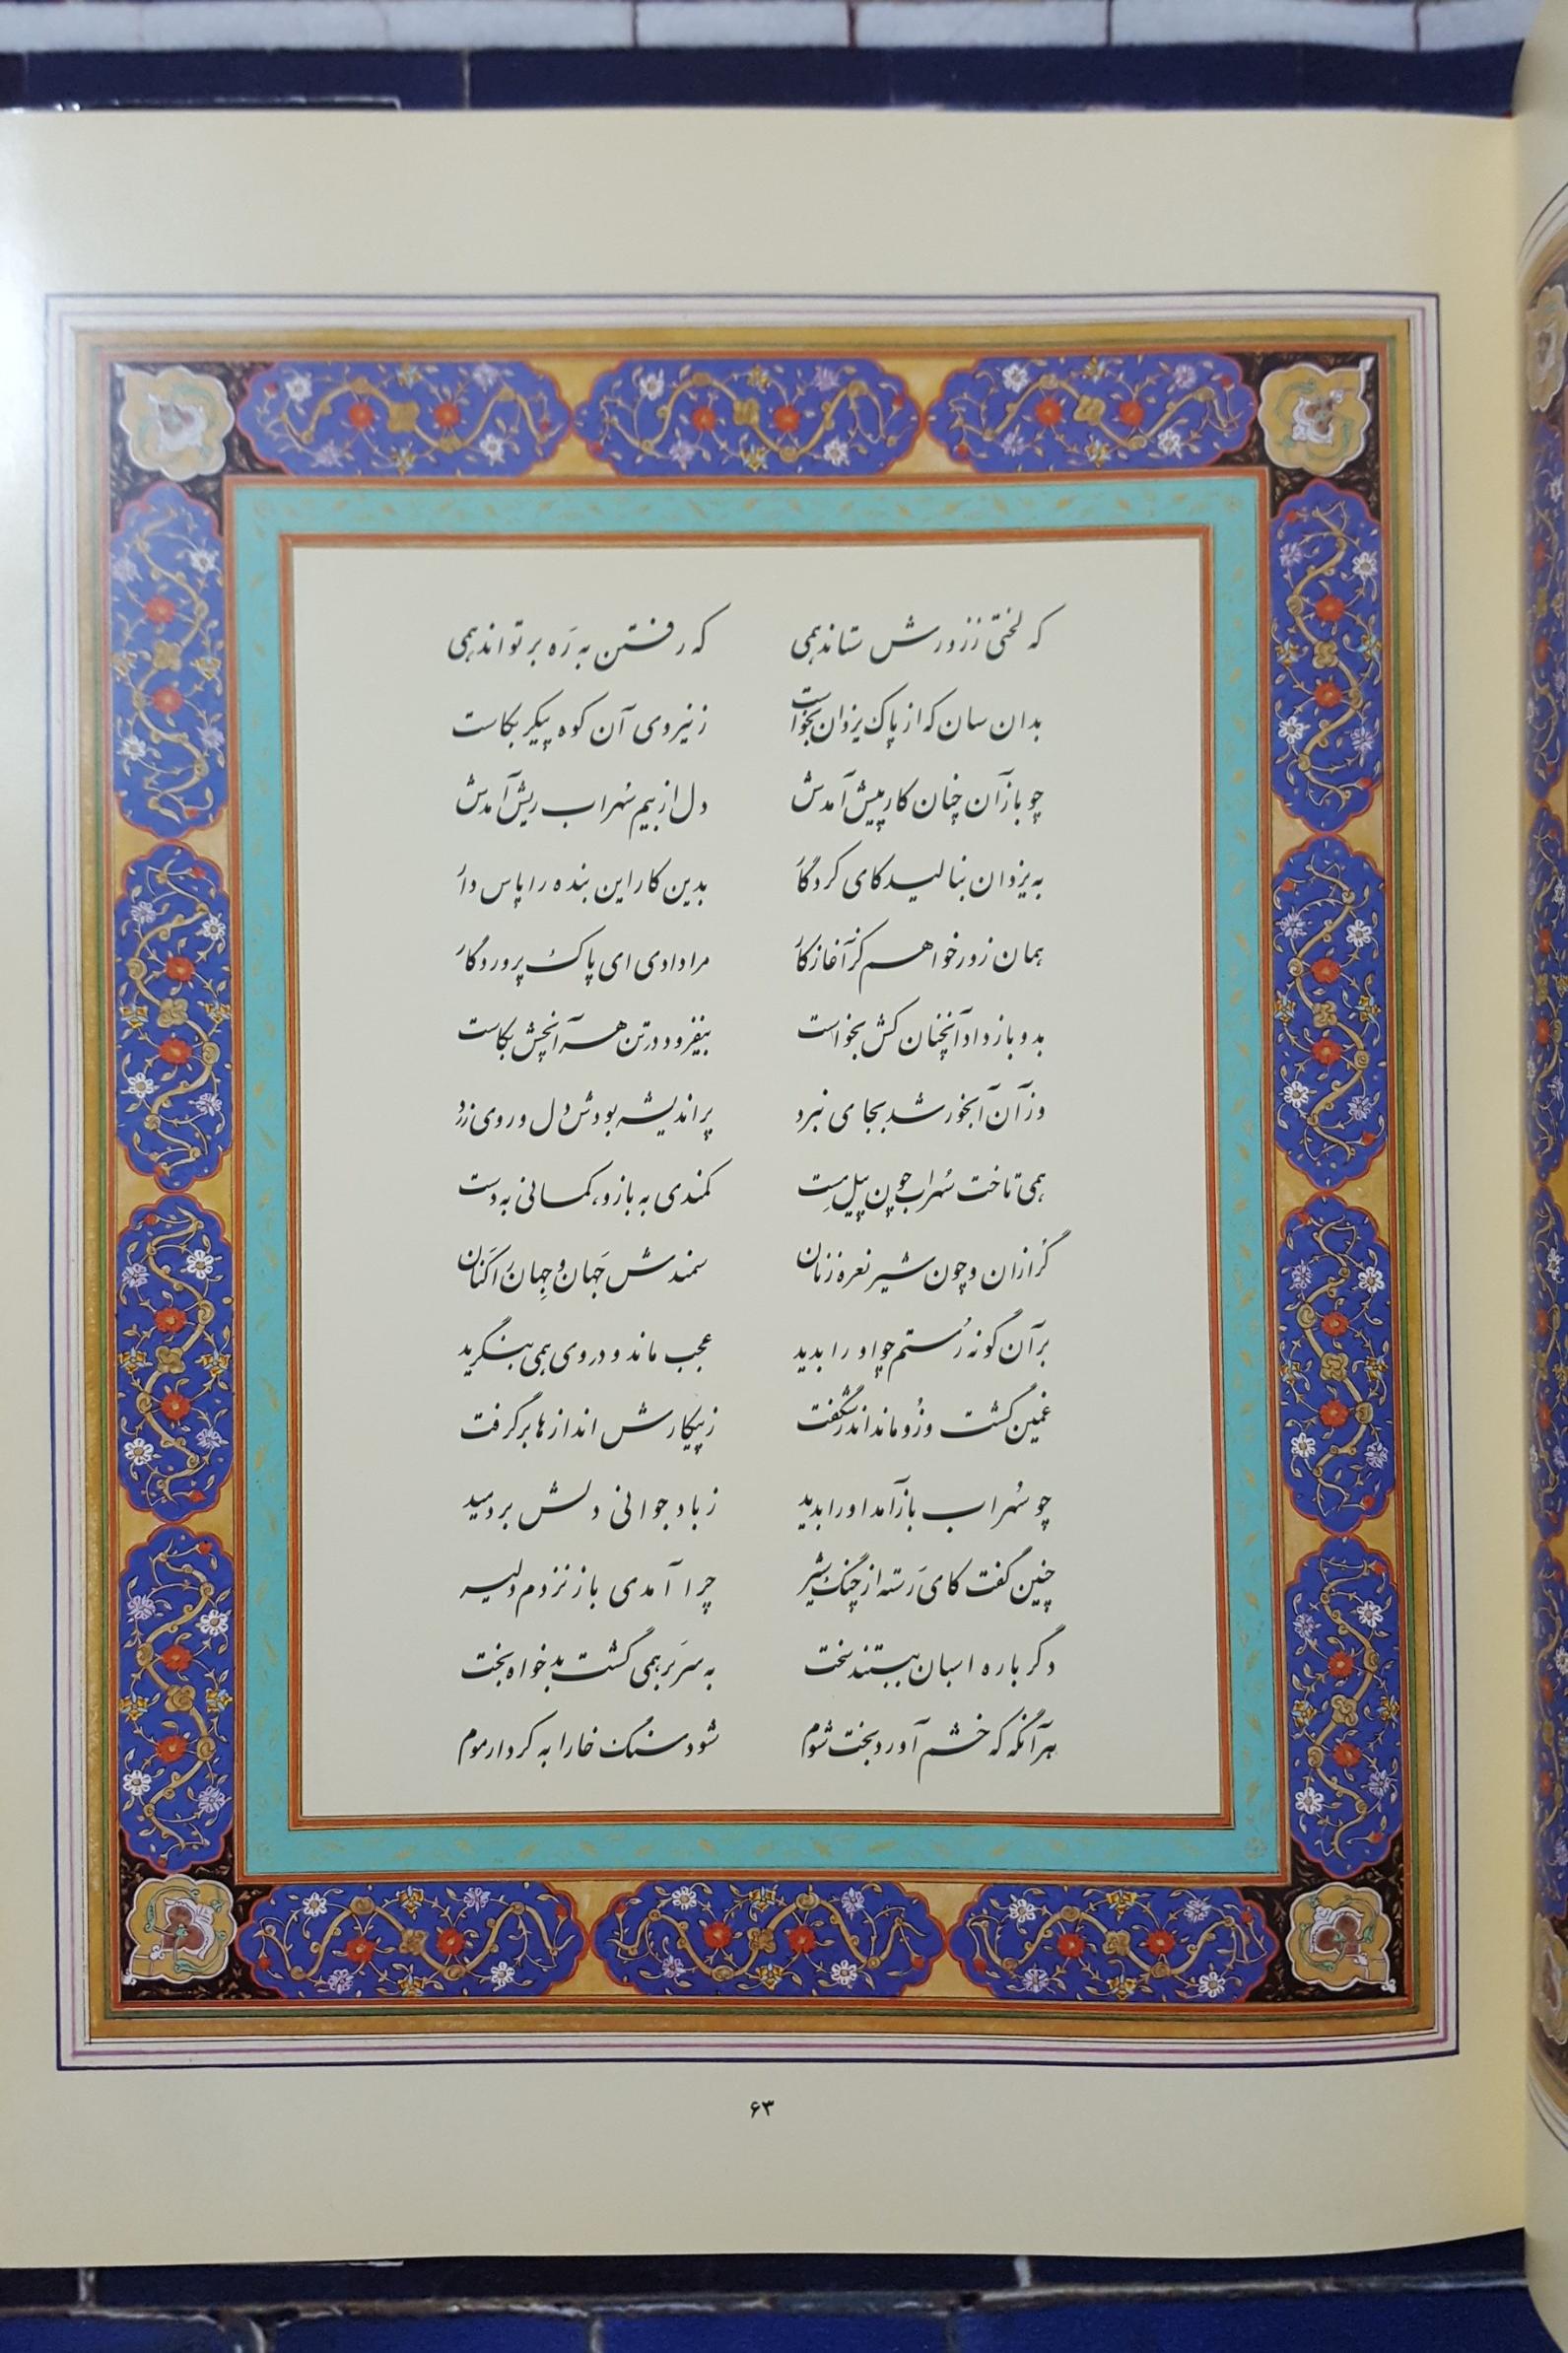 که لختی ز زورش ستاند همی که رفتن به ره بر تواند همی
بدان سان که از پاک یزدان بخواست ز نیروی آن کوه پیکر بکاست
چو باز آن چنان کار پیش آمدش دل از بیم سُهراب ریش آمدش
به یزدان بنالید کای کردگار بدین کار این بنده را پاس دار
همان زور خواهم کز آغاز کار مرا دادی ای پاک پروردگار
بدو باز داد آنچنان کش بخواست بیفزود در تن هر آنچش بکاست
وز آن آبخور شد بجای نبرد پر اندیشه بودش دل و روی زرد
همی تاخت سُهراب چون پیل مست کمندی به بازو، کمانی به دست
گُرازان و چون شیر نعره زنان سمندش جَهان و جِهان را کَنان
بر آن گونه رُستم چو او را بدید عجب ماند و در وی همی بنگرید
غمین گشت وزُو ماند اندر شگفت ز پیکارش اندازها برگرفت
چو سُهراب باز آمد او را بدید ز باد جوانی دلش بردمید
چنین گفت کای رَسته از چنگ شیر چرا آمدی باز نزدم دلیر
دگر باره اسبان ببستند سخت به سَر بَر همی گشت بدخواه بخت
هر آنگه که خشم آورد بخت شوم شود سنگ خارا به کردار موم
۶۳